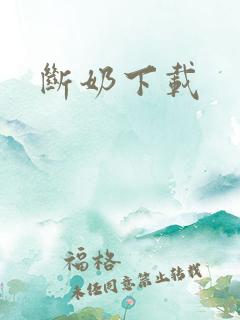 斷奶下載
福格
未经同意禁止转载